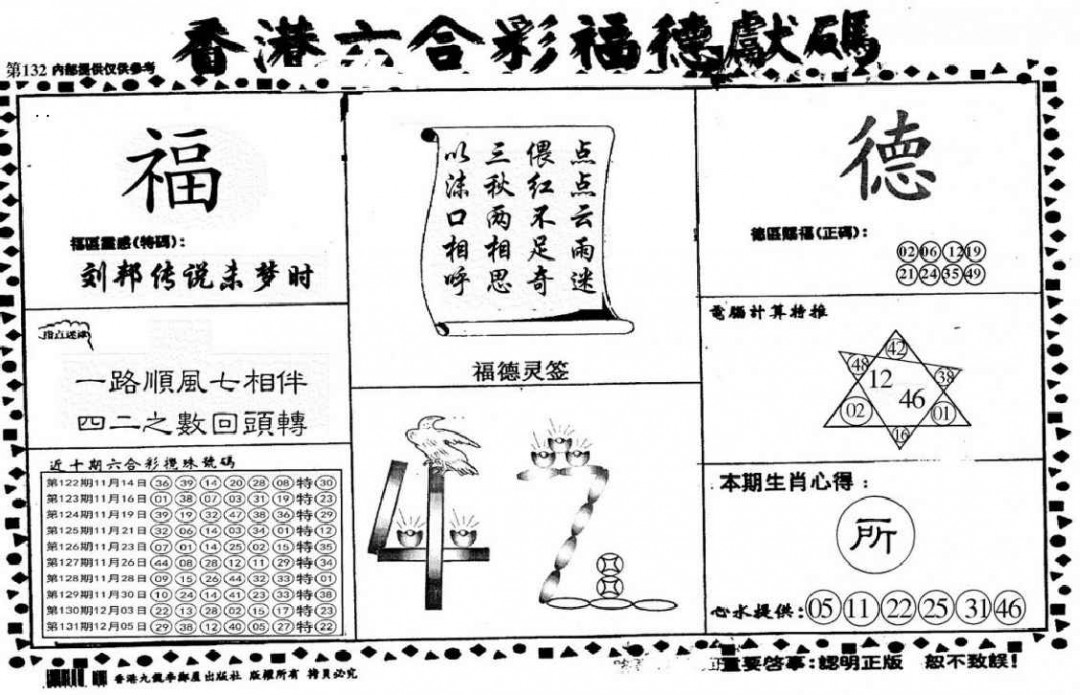 香港六合彩福德獻碼
第132 内部提供仅供参考
福
福區靈感(特碼):
刘邦传说未梦时
一路順風七相伴
四二之數回頭轉
近十期六合彩攪珠號碼
第122期11月14日 36 39 14 20 28 08 特 30
第123期11月16日 01 38 07 03 31 19 特 23
第124期11月19日 39 19 32 47 38 36 特 29
第125期11月21日 32 06 14 03 34 01 特 12
第126期11月23日 07 01 14 25 02 15 特 35
第127期11月26日 44 08 28 12 11 29 特 34
第128期11月28日 09 15 26 44 32 33 特 01
第129期11月30日 10 24 14 41 23 33 特 38
第130期12月03日 22 13 28 02 15 17 特 23
第131期12月05日 29 38 12 40 05 27 特 22
点点云雨迷
偎红不足奇
三秋两相思
以沫口相呼
福德灵签
42
德
德區賜福(正碼):
02 06 12 19
21 24 35 49
電腦計算特推
42
48 38
12
46
02 01
16
本期生肖心得:
所
心水提供: 05 11 22 25 31 46
重要啓事:認明正版 敬不致誤!
香港九龍 出版社 版權所有 拷貝必究